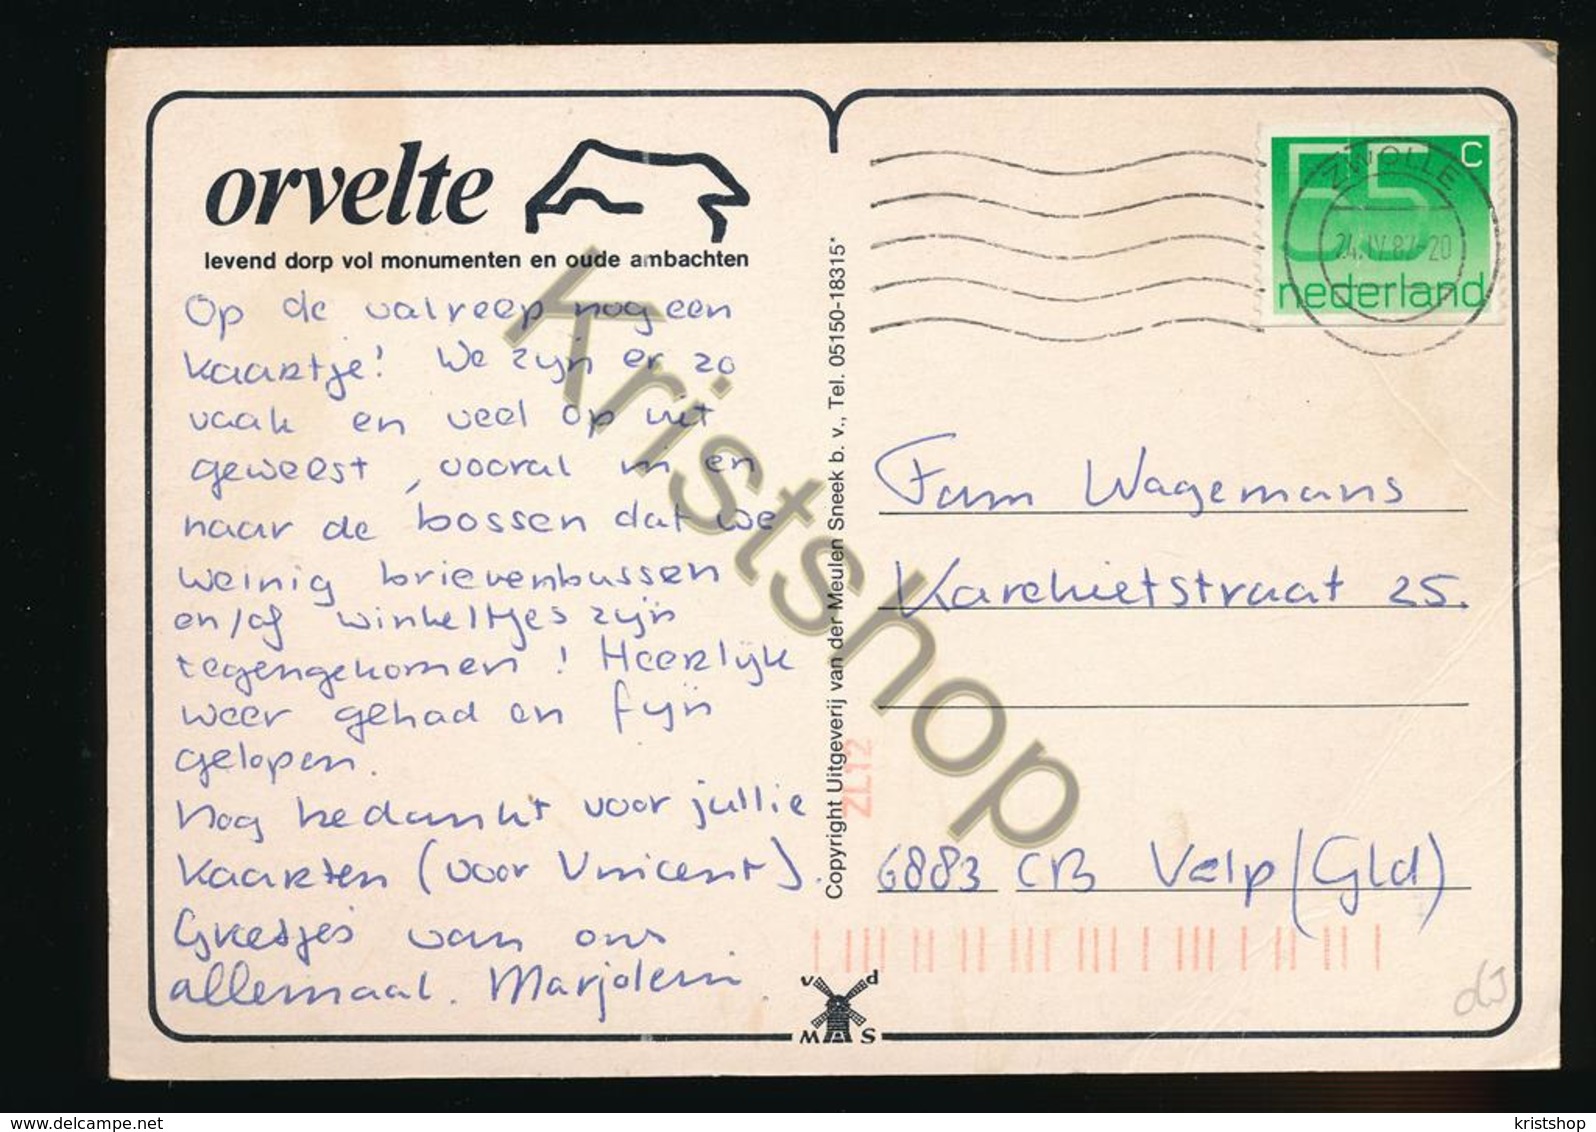 orvelte
levend dorp vol monumenten en oude ambachten
Op de valreep nog een
kaartje! We zijn er zo
vaak en veel op uit
geweest, vooral in en
naar de bossen dat we
weinig brievenbussen
en/of winkeltjes zijn
tegengekomen! Heerlijk
weer gehad en fijn
gelopen.
Nog bedankt voor jullie
kaarten (voor Vincent).
Groetjes van ons
allemaal. Marjolein.
Copyright Uitgeverij van der Meulen Sneek b.v., Tel. 05150-18315*
ZL12
55 c
nederland
ZWOLLE
24.IV.87-20
Fam Wagemans
Karehietstraat 25.
6883 CB Velp (Gld)
v d
M A S
Kristshop
kristshop
delcampe.net